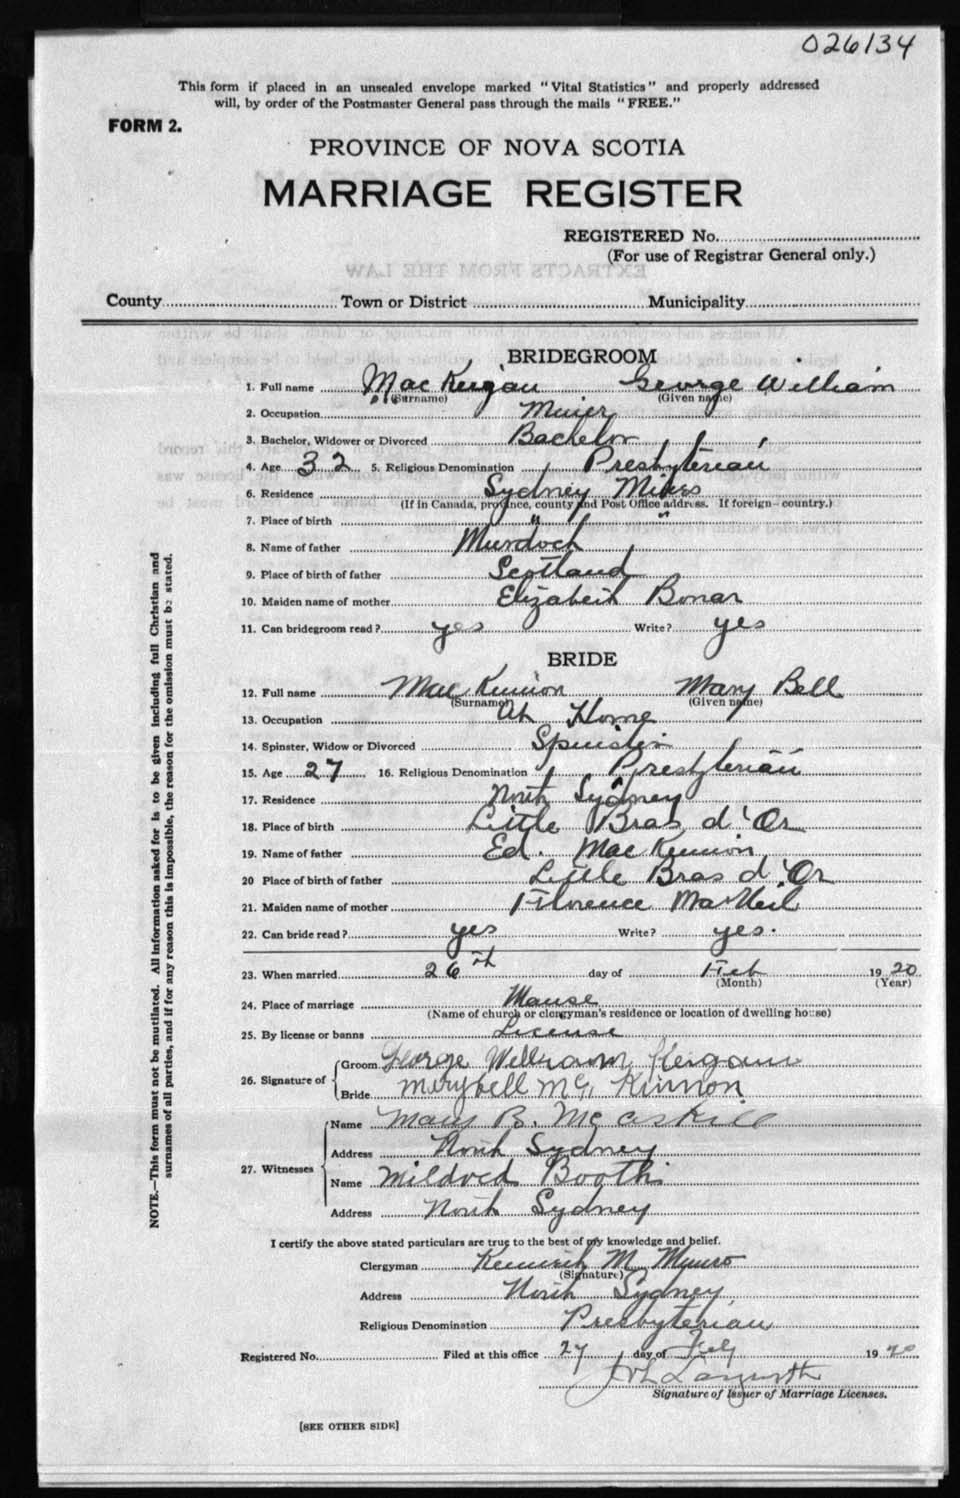 026134
This form if placed in an unsealed envelope marked "Vital Statistics" and properly addressed
will, by order of the Postmaster General pass through the mails "FREE."
FORM 2.
PROVINCE OF NOVA SCOTIA
MARRIAGE REGISTER
REGISTERED No.
(For use of Registrar General only.)
County Town or District Municipality
BRIDEGROOM
1. Full name MacKeigan George William
(Surname) (Given name)
2. Occupation Miner
3. Bachelor, Widower or Divorced Bachelor
4. Age 32 5. Religious Denomination Presbyterian
6. Residence Sydney Mines
(If in Canada, province, county and Post Office address. If foreign—country.)
7. Place of birth " "
8. Name of father Murdoch
9. Place of birth of father Scotland
10. Maiden name of mother Elizabeth Bonar
11. Can bridegroom read? yes Write? yes
BRIDE
12. Full name MacKinnon Mary Bell
(Surname) (Given name)
13. Occupation At Home
14. Spinster, Widow or Divorced Spinster
15. Age 27 16. Religious Denomination Presbyterian
17. Residence North Sydney
18. Place of birth Little Bras d'Or
19. Name of father Ed. MacKinnon
20 Place of birth of father Little Bras d'Or
21. Maiden name of mother Florence MacNeil
22. Can bride read? yes Write? yes.
23. When married 26th day of Feb 1920
(Month) (Year)
24. Place of marriage Manse
(Name of church or clergyman's residence or location of dwelling house)
25. By license or banns License
26. Signature of Groom George William Keigan
Bride Marybell Mc Kinnon
27. Witnesses Name Mary B. McAskill
Address North Sydney
Name Mildred Booth
Address North Sydney
I certify the above stated particulars are true to the best of my knowledge and belief.
Clergyman Kenneth M. Munro
(Signature)
Address North Sydney
Religious Denomination Presbyterian
Registered No. Filed at this office 27 day of Feby 1920
Signature of Issuer of Marriage Licenses.
[SEE OTHER SIDE]
NOTE.—This form must not be mutilated. All information asked for is to be given including full Christian and
surnames of all parties, and if for any reason this is impossible, the reason for the omission must be stated.